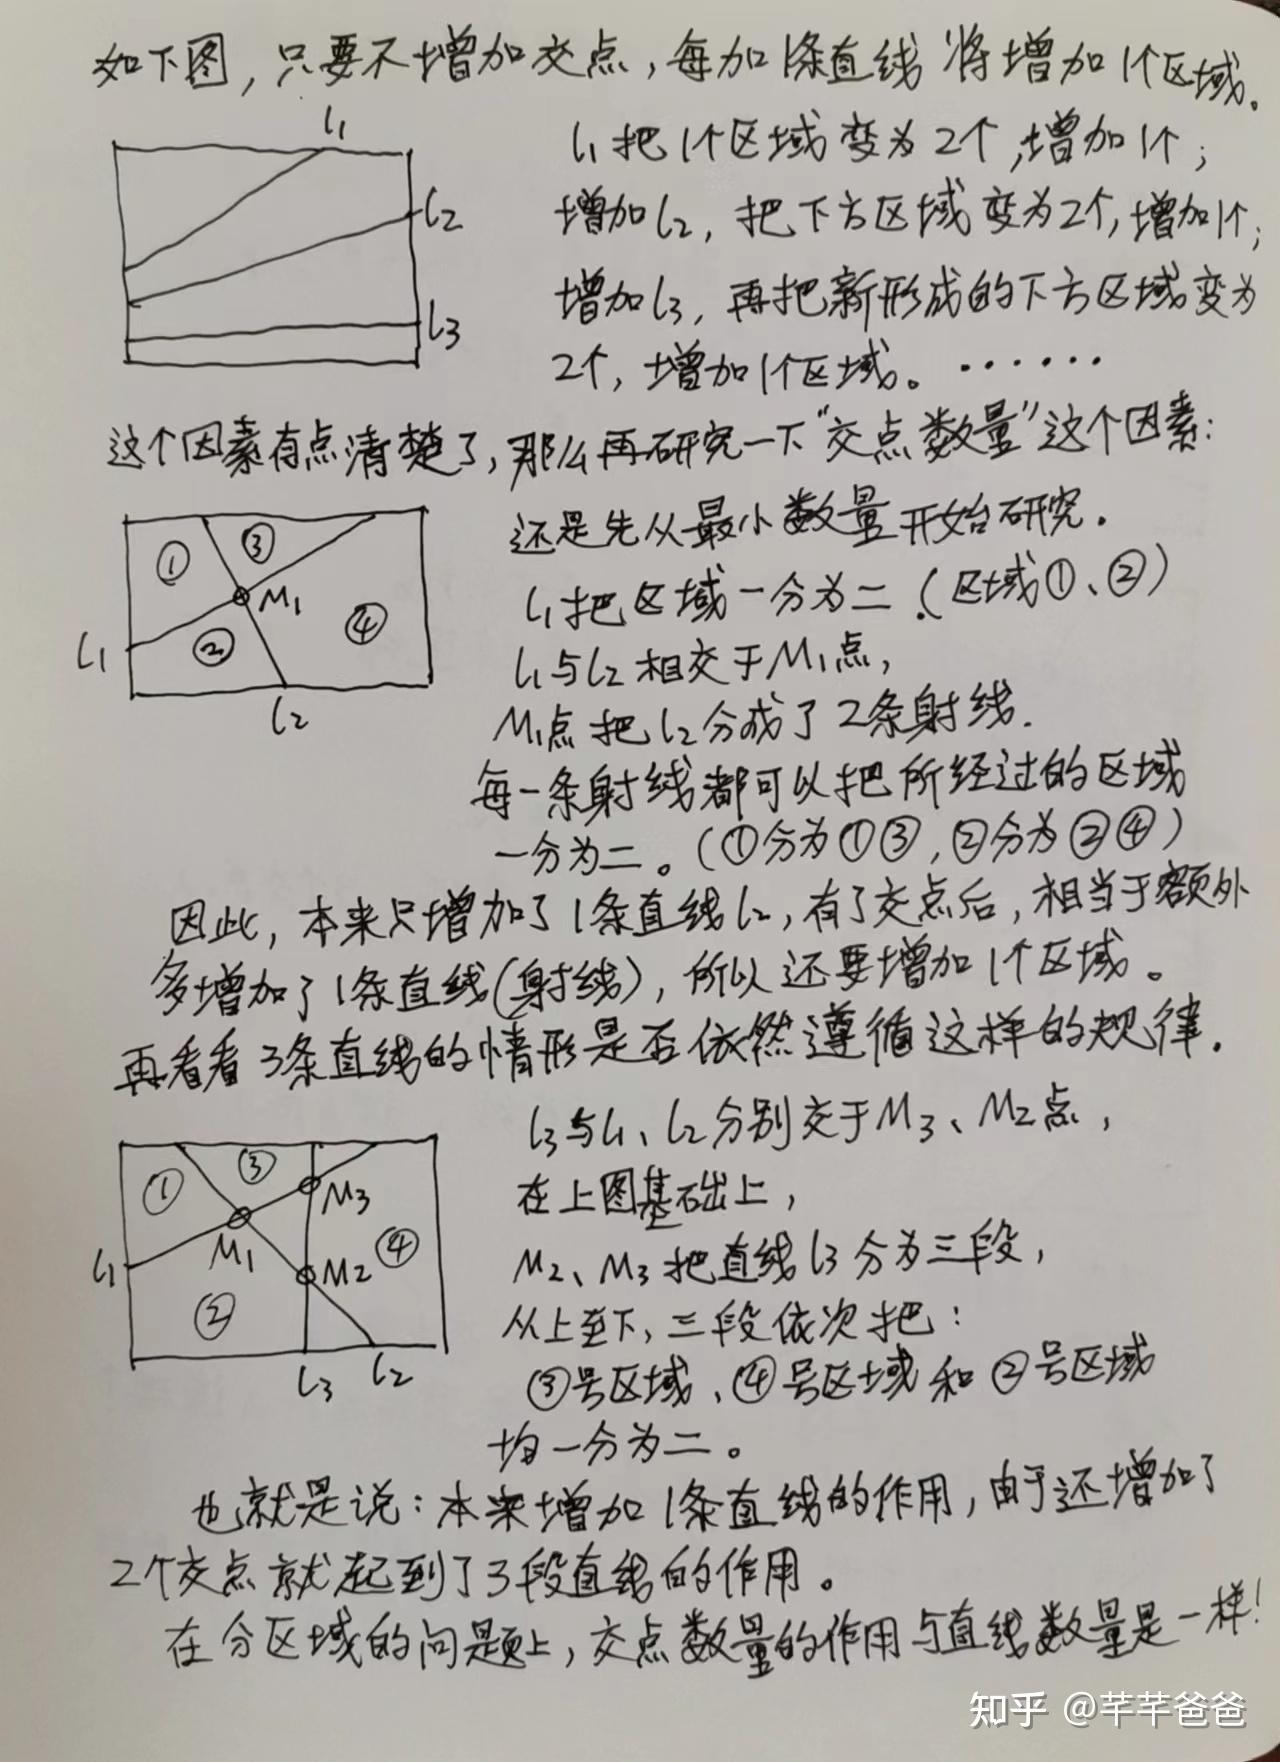 如下图，只要不增加交点，每加1条直线将增加1个区域。
l1
l2
l3
l1把1个区域变为2个，增加1个；
增加l2，把下方区域变为2个，增加1个；
增加l3，再把新形成的下方区域变为
2个，增加1个区域。······
这个因素有点清楚了，那么再研究一下“交点数量”这个因素：
① ③
M1
② ④
l1
l2
还是先从最小数量开始研究．
l1把区域一分为二．(区域①、②)
l1与l2相交于M1点，
M1点把l2分成了2条射线．
每一条射线都可以把所经过的区域
一分为二。(①分为①③，②分为②④)
因此，本来只增加了1条直线l2，有了交点后，相当于额外
多增加了1条直线(射线)，所以还要增加1个区域。
再看看3条直线的情形是否依然遵循这样的规律．
① ③
M3
M1
④
l1
M2
②
l3 l2
l3与l1、l2分别交于M3、M2点，
在上图基础上，
M2、M3把直线l3分为三段，
从上至下，三段依次把：
③号区域、④号区域和②号区域
均一分为二。
也就是说：本来增加1条直线的作用，由于还增加了
2个交点就起到了3段直线的作用。
在分区域的问题上，交点数量的作用与直线数量是一样！
知乎 @芊芊爸爸